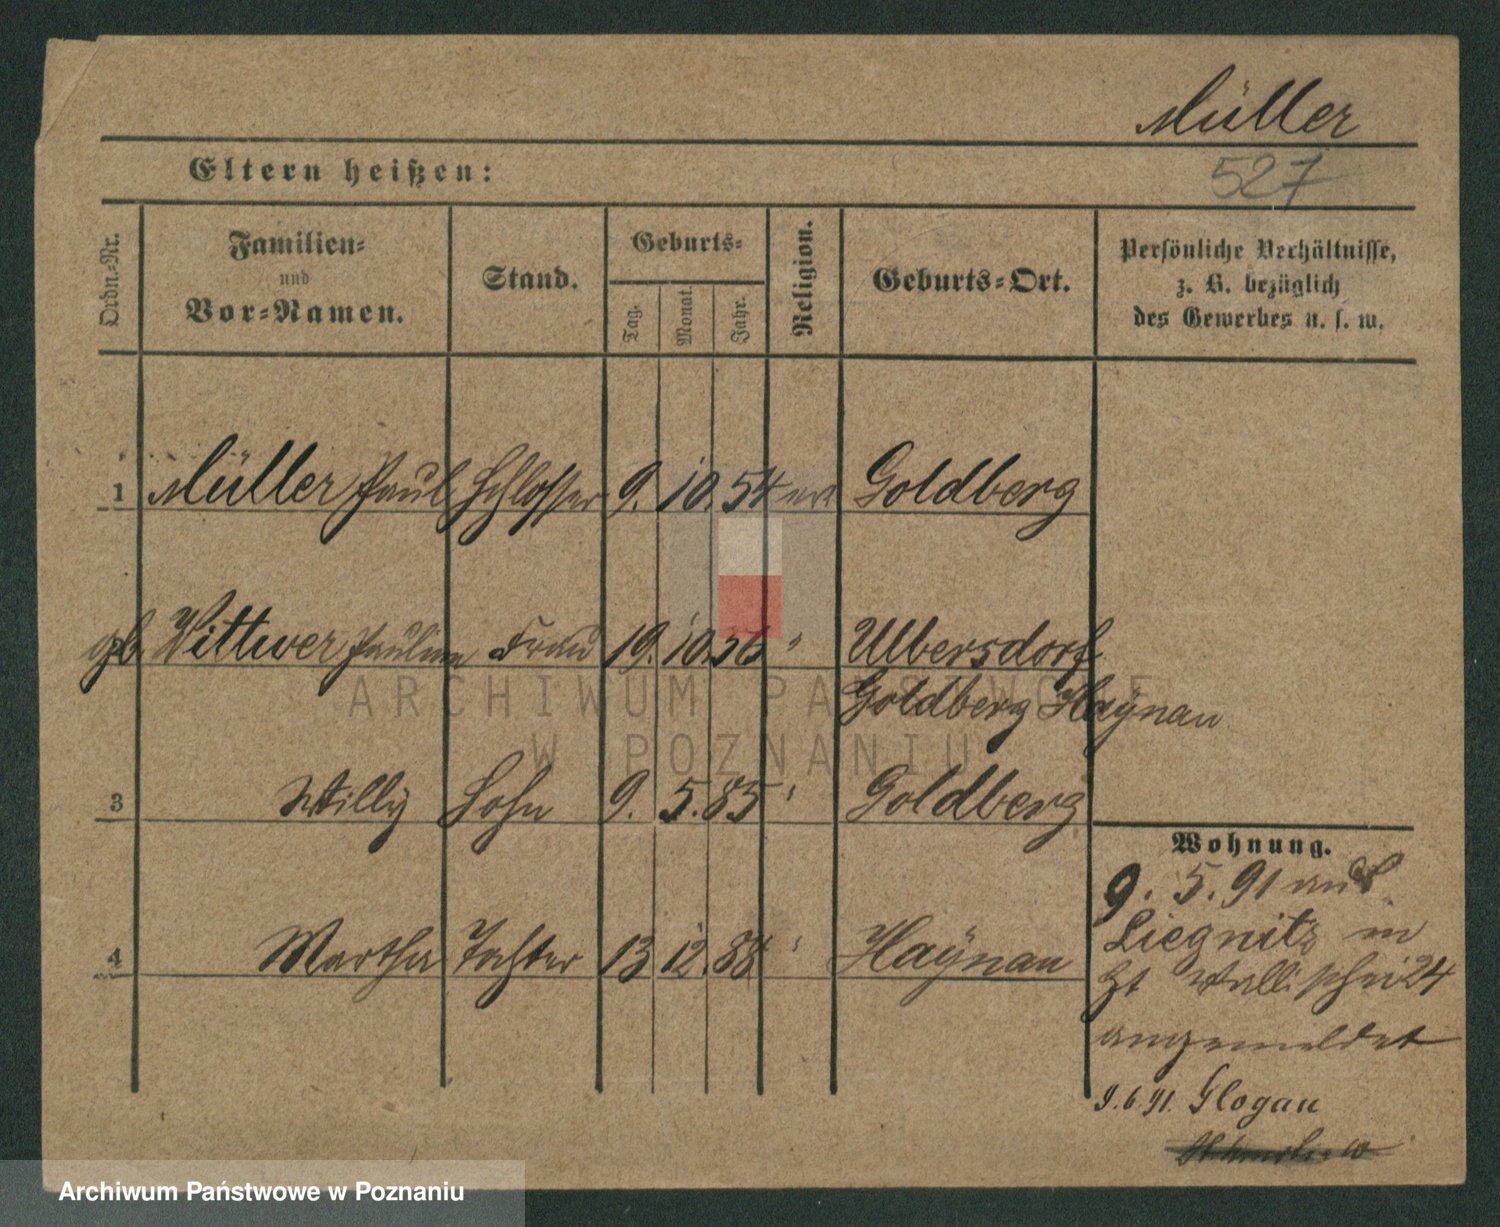 Müller
527
Eltern heißen:
Ordn.-Nr.
Familien-
und
Vor-Namen.
Stand.
Geburts-
Tag.
Monat.
Jahr.
Religion.
Geburts-Ort.
Persönliche Verhältnisse,
z. B. bezüglich
des Gewerbes u. s. w.
1 Müller Paul Schlosser 9. 10. 54 Goldberg
gb. Wittwer Pauline Frau 19. 10. 56 " Ulbersdorf
Goldberg Haÿnau
3 Willy Sohn 9. 5. 85 " Goldberg
4 Martha Tochter 13 12. 88 " Haÿnau
Wohnung.
9. 5. 91 aus
Liegnitz in
24
angemeldet
9.6.91. Glogau
ARCHIWUM PAŃSTWOWE
W POZNANIU
Archiwum Państwowe w Poznaniu